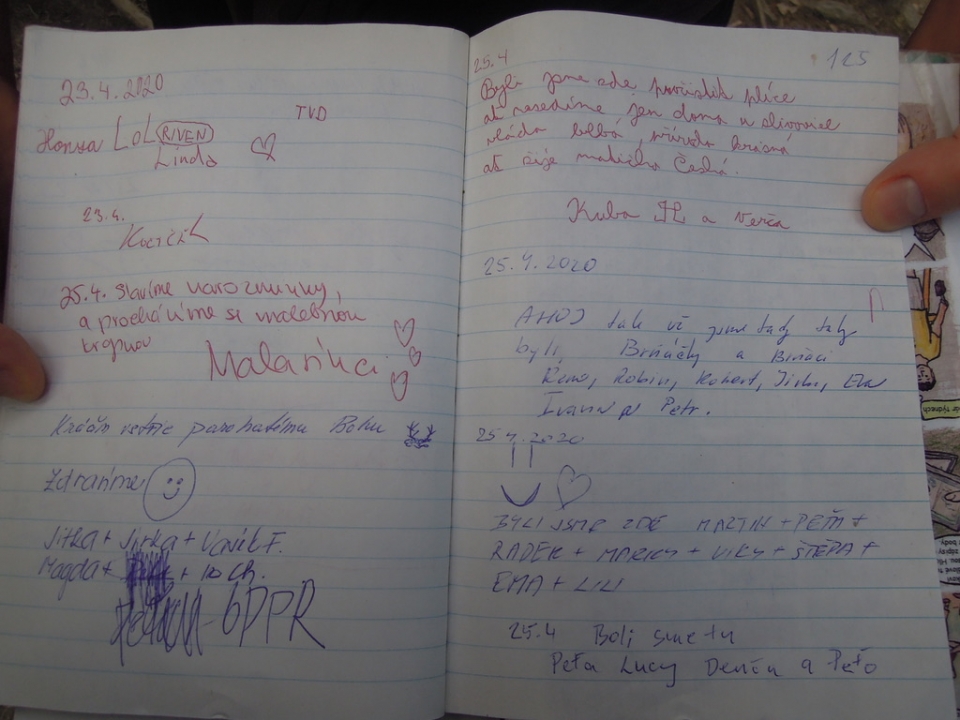 23.4.2020
TVD
Honza LOL RIVEN
Linda
23.4.
25.4. slavíme narozeniny,
a procházíme se malebnou
krajinou
Malaníci
parohatému Bohu
Zdravíme
Jitka + Jirka + Vašík F.
Magda + + ch.
GDPR
125
25.4
Byli jsme zde pročistit plíce
ať nesedíme jen doma u slivovice
vláda blbá, příroda krásná
ať žije matička Česká.
Kuba H a Verča
25.4.2020
AHOJ tak už jsme tady taky
byli, Brňačky a Brňáci
Robin, Robert, Jirka, Eva
Ivana a Petr.
25.4.2020
BYLI JSME ZDE MARTIN + PEŤA +
RADEK + MARKY + VIKY + ŠTĚPA +
EMA + LILI
25.4 Boli sme tu
Peťa Lucy Denča a Peťo